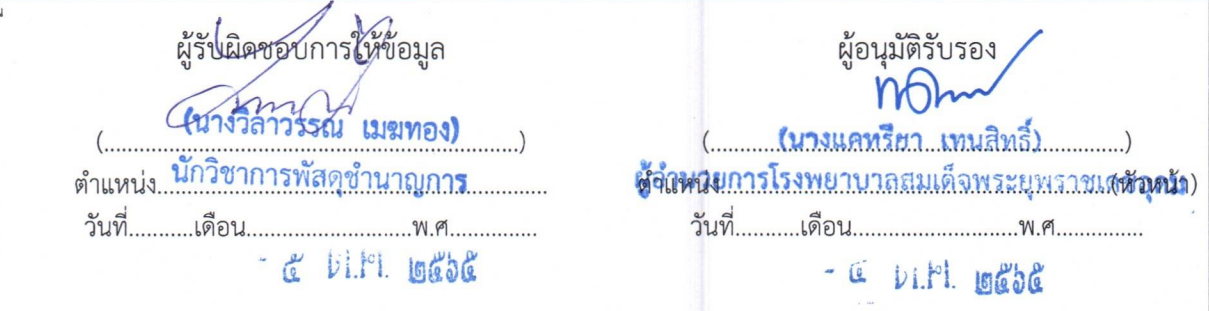 ผู้รับผิดชอบการให้ข้อมูล
(นางวิลาวรรณ เมฆทอง)
ตำแหน่ง นักวิชาการพัสดุชำนาญการ
วันที่...........เดือน.............................พ.ศ...............
- ๕ ต.ค. ๒๕๖๕
ผู้อนุมัติรับรอง
(นางแคทรียา เทนสิทธิ์)
ตำแหน่ง ผู้อำนวยการโรงพยาบาลสมเด็จพระยุพราช (หัวหน้า)
วันที่...........เดือน.............................พ.ศ...............
ต.ค. ๒๕๖๕